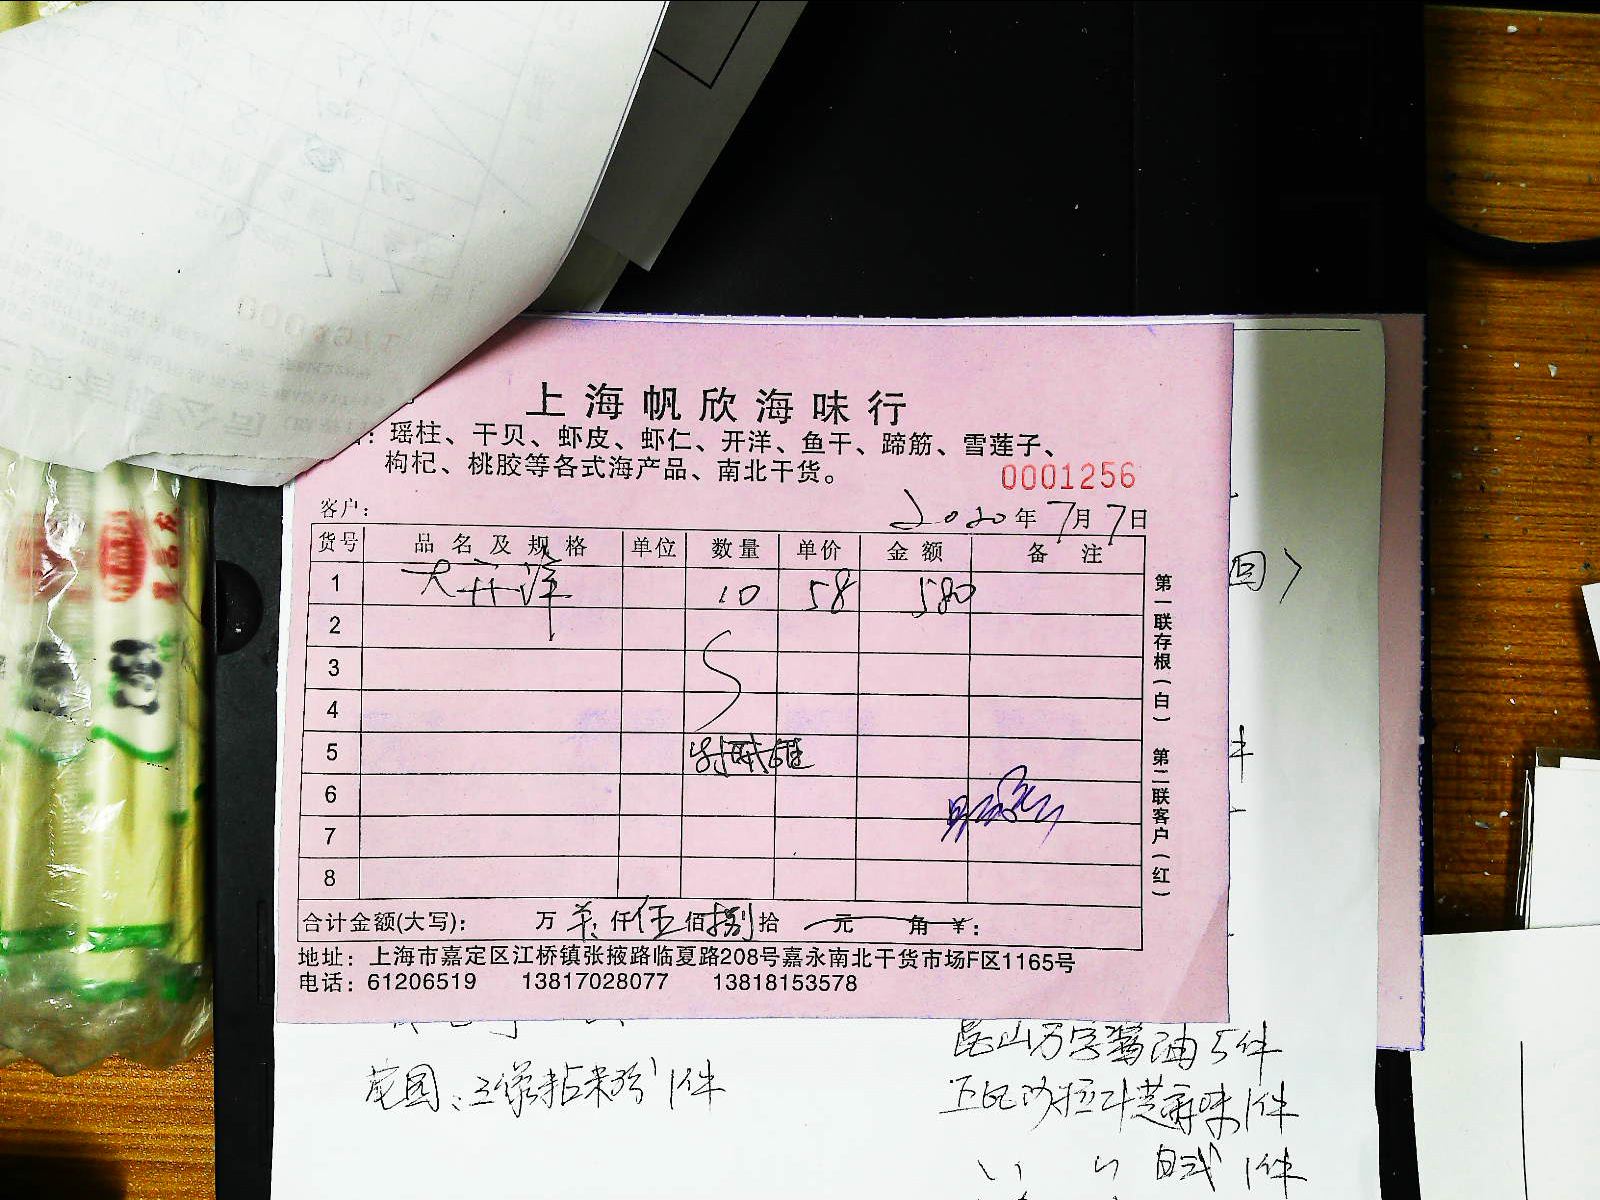 上海帆欣海味行
:瑶柱、干贝、虾皮、虾仁、开洋、鱼干、蹄筋、雪莲子、
枸杞、桃胶等各式海产品、南北干货。
0001256
客户:
2020年7月7日
货号 品名及规格 单位 数量 单价 金额 备注
1 大开洋 10 58 580
2
3
4
5
6
7
8
合计金额(大写): 万 仟伍佰捌拾 元 角 ¥:
地址: 上海市嘉定区江桥镇张掖路临夏路208号嘉永南北干货市场F区1165号
电话: 61206519 13817028077 13818153578
第一联存根(白) 第二联客户(红)
回〉
件
昆山万字酱油5件
花园:三象粘米粉1件
芝麻味1件
1件